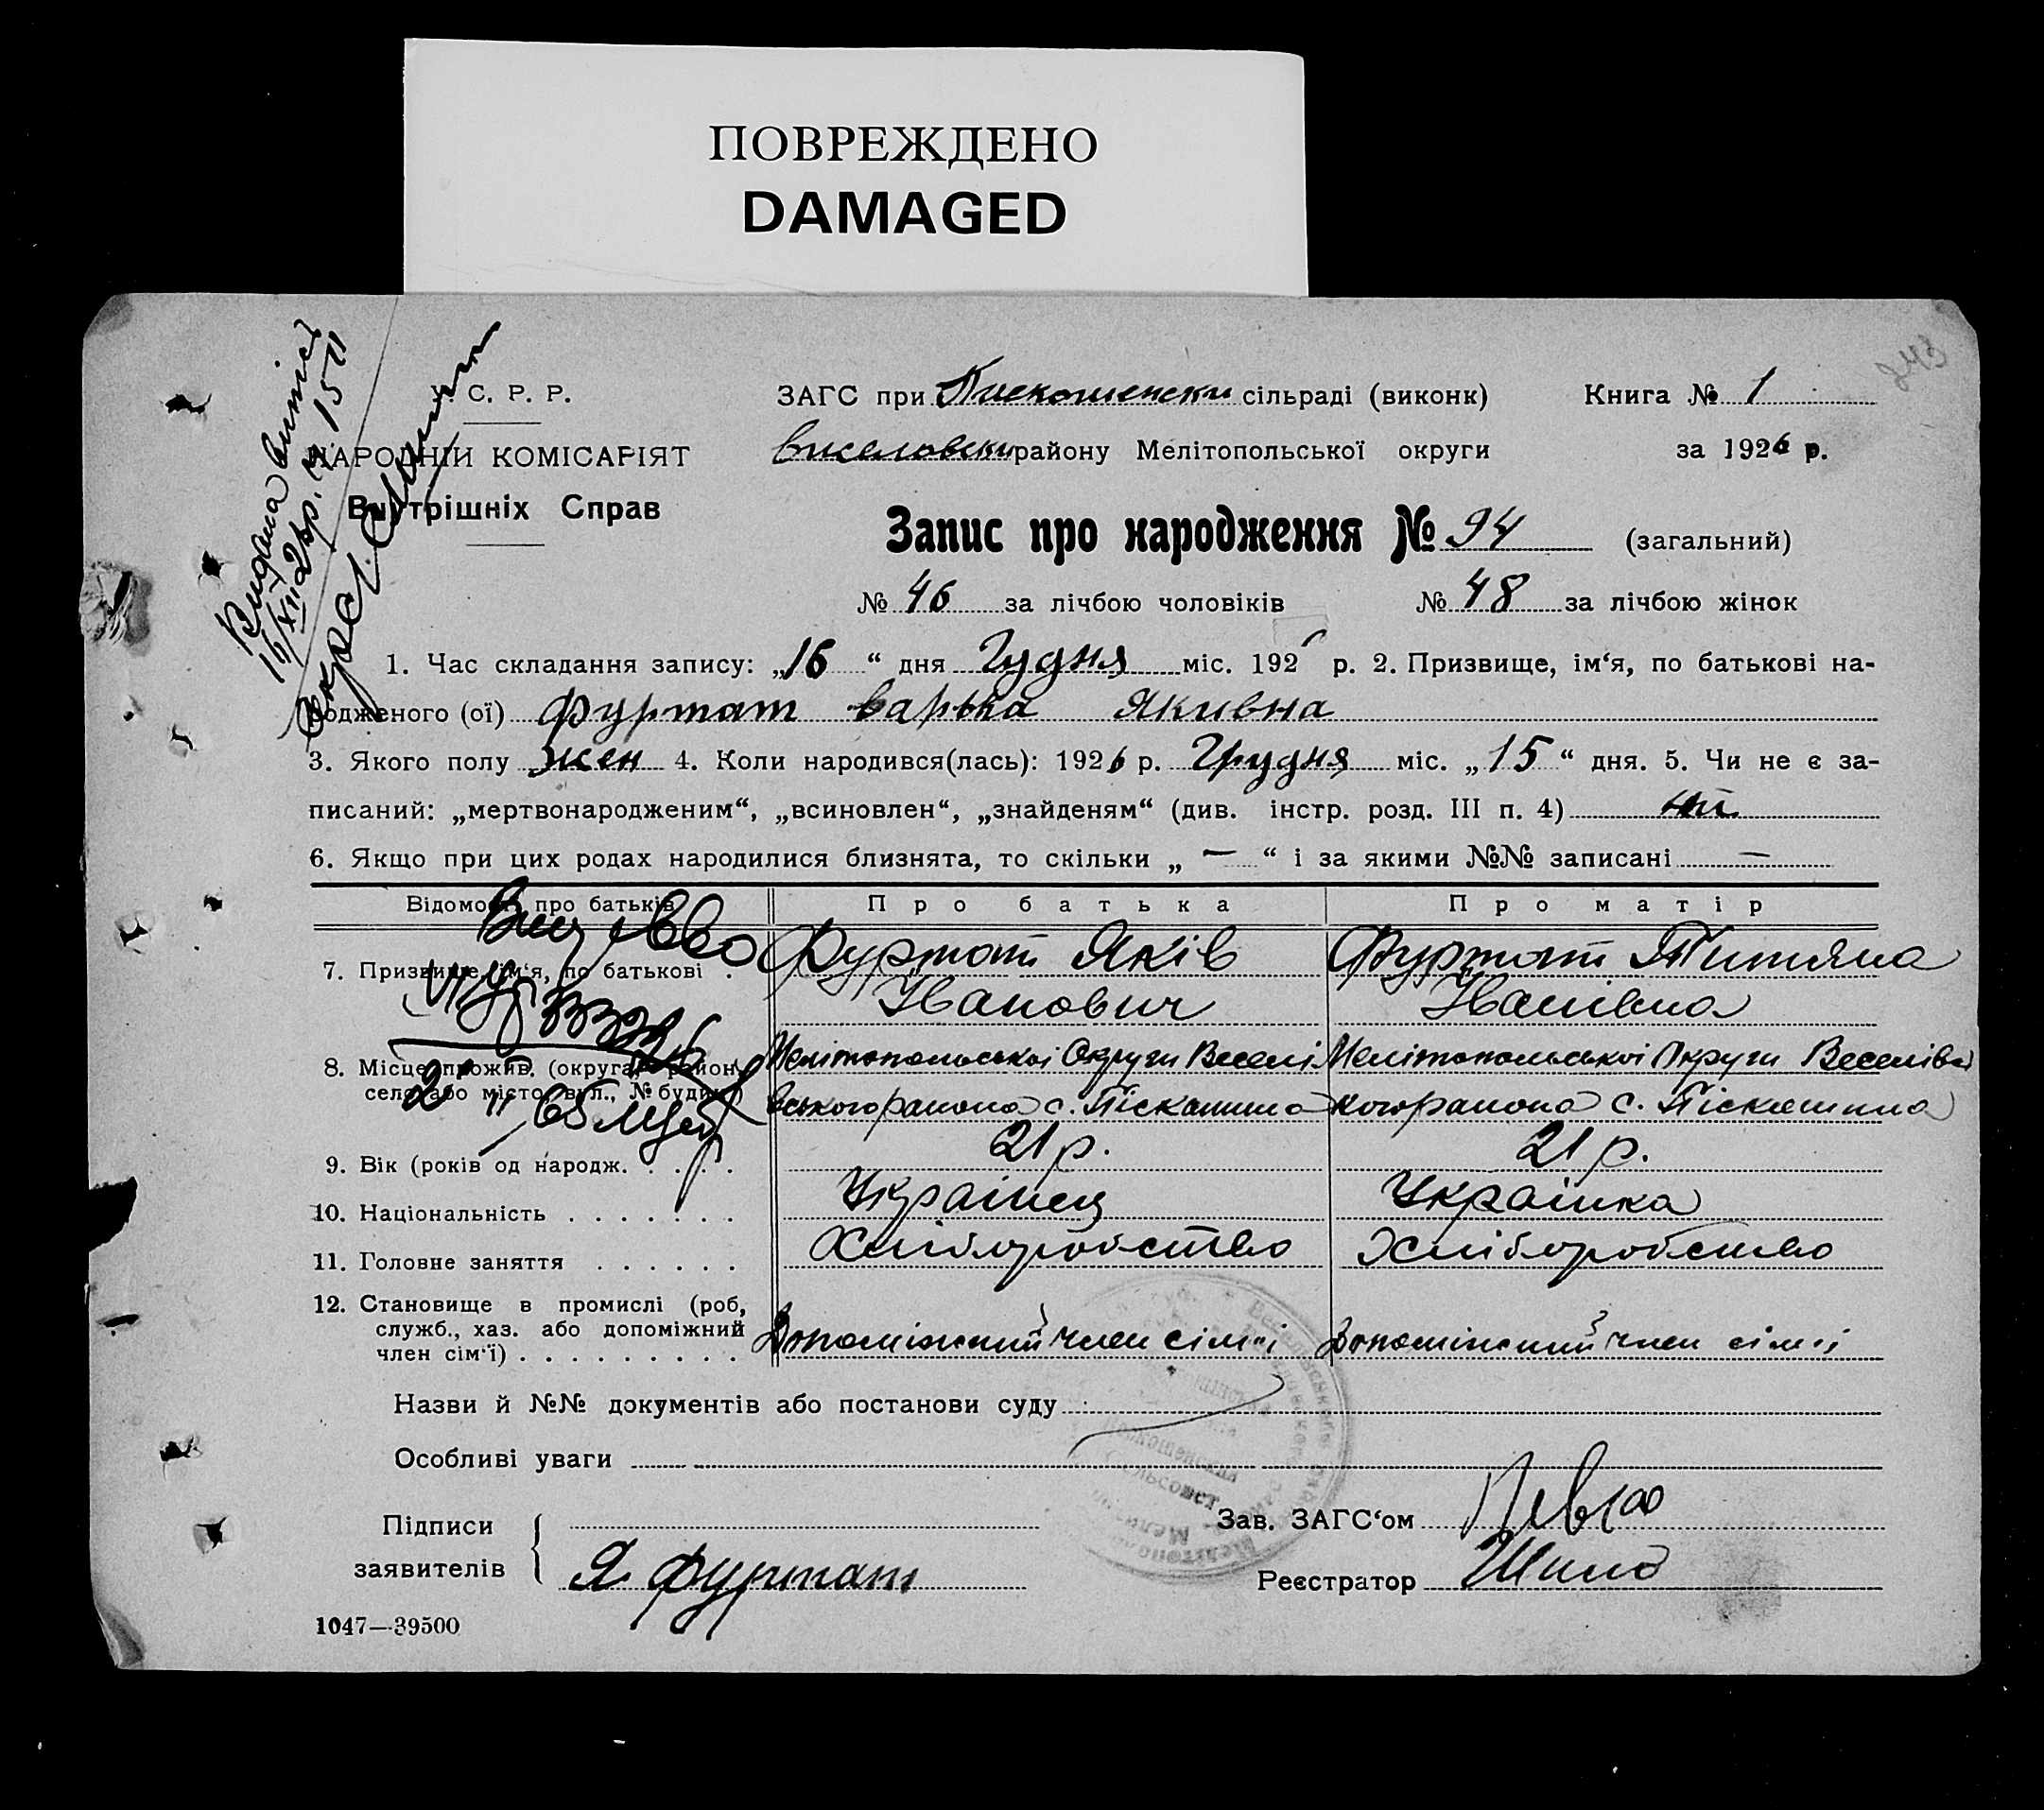 ПОВРЕЖДЕНО
DAMAGED
243
У. С. Р. Р.
НАРОДНІЙ КОМІСАРІЯТ
Внутрішніх Справ
Видана
ЗАГС при Пискошенски сільраді (виконк)
Книга № 1
Виселовски району Мелітопольської округи
за 1926 р.
Запис про народження № 94 (загальний)
№ 46 за лічбою чоловіків № 48 за лічбою жінок
1. Час складання запису: „16“ дня Гудня міс. 1926 р. 2. Призвище, ім‘я, по батькові на-
родженого (ої) Фуртат Варька Якивна
3. Якого полу жен 4. Коли народився(лась): 1926 р. Грудня міс. „15“ дня. 5. Чи не є за-
писаний: „мертвонародженим“, „всиновлен“, „знайденям“ (див. інстр. розд. III п. 4) ні
6. Якщо при цих родах народилися близнята, то скільки „ — “ і за якими №№ записані —
Відомості про батьків Про батька Про матір
7. Призвище, ім‘я, по батькові . Фуртат Яків Фуртат Титяна
Іванович Іванівна
8. Місце прожив. (округа, район, Мелітопольської Округи Веселі Мелітопольської Округи Веселівсь
село або місто, вул., № будин.) вського района с. Піскашина кого района с. Піскашина
9. Вік (років од народж. . . . . 21 р. 21 р.
10. Національність . . . . . . . Українец Українка
11. Головне заняття . . . . . . Хліборобство Хліборобство
12. Становище в промислі (роб,
служб., хаз. або допоміжний
член сім‘ї) . . . . . . . . . Допоміжний член сімьі Допоміжний член сімьі
Назви й №№ документів або постанови суду
Особливі уваги
Сельсовет
Підписи
заявителів
Я Фуртат
Зав. ЗАГС‘ом
Реєстратор Шило
1047—39500